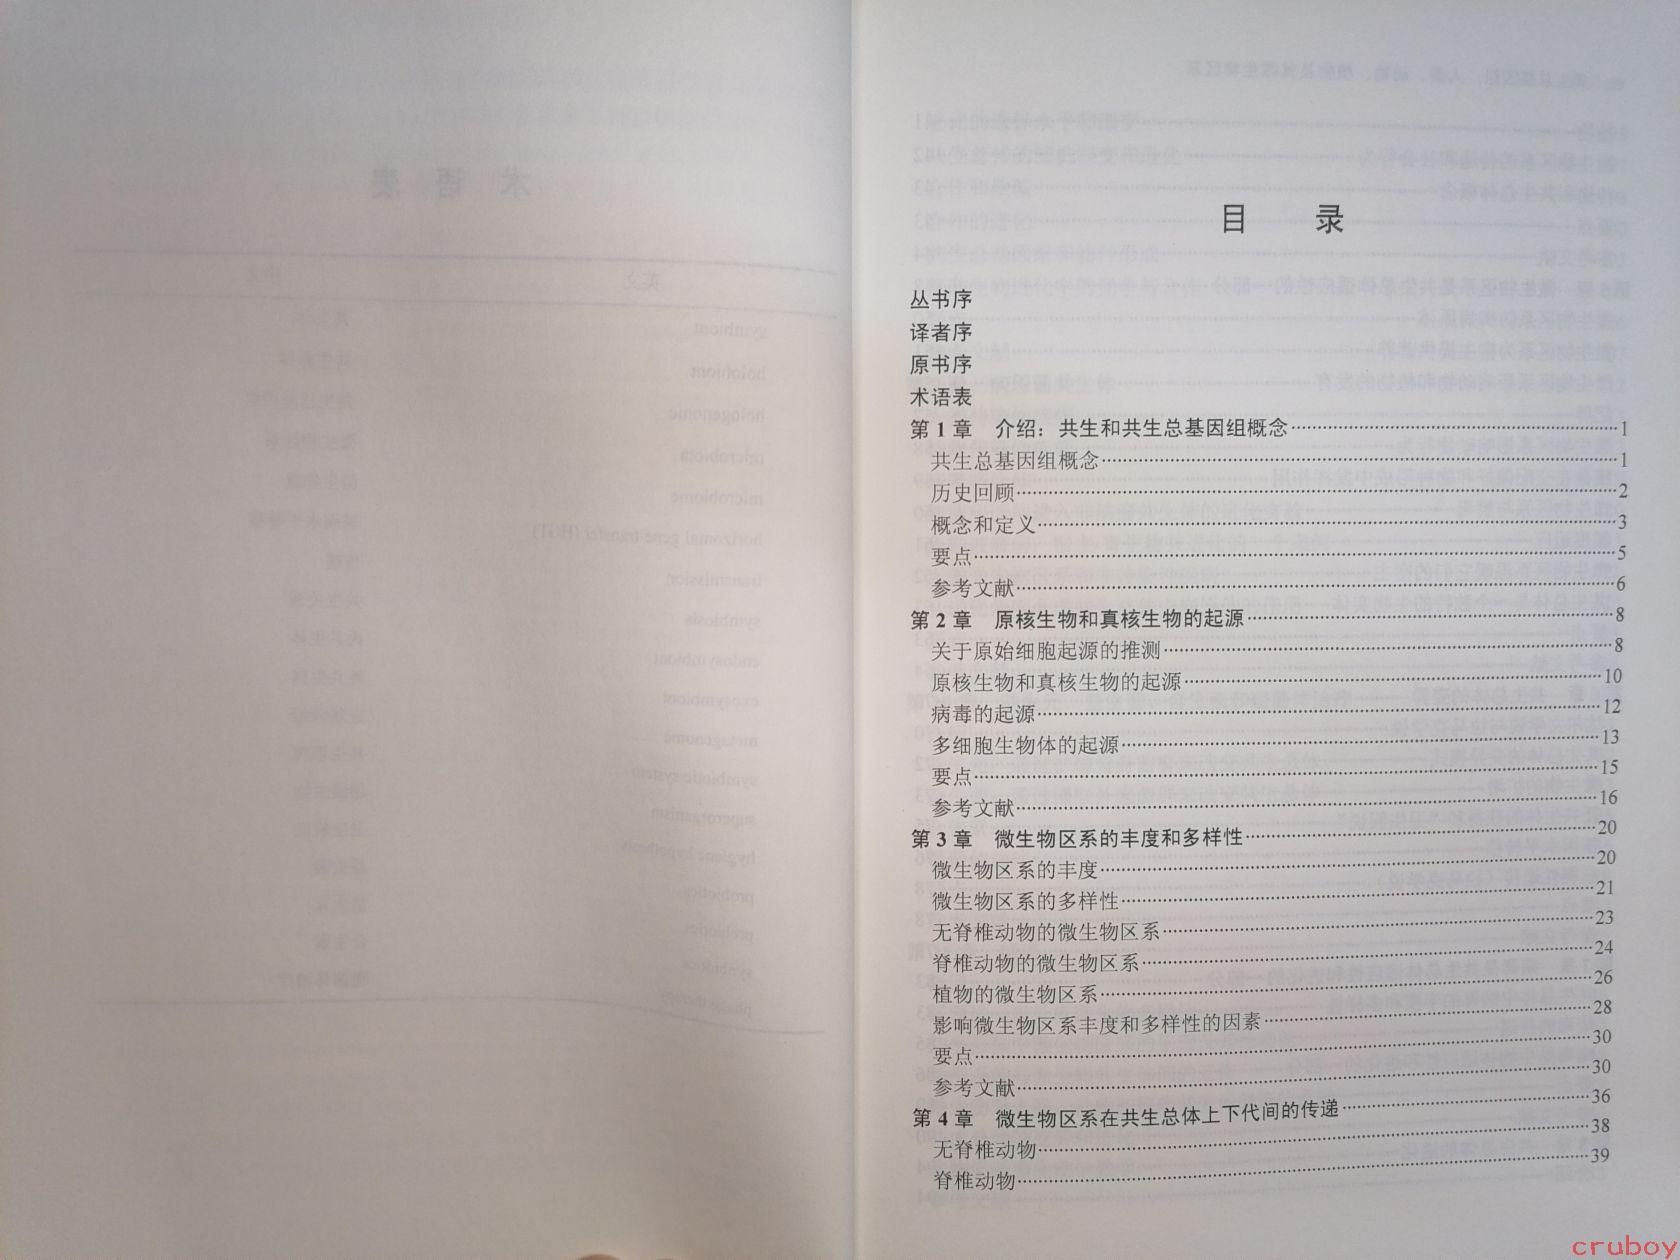 目 录
丛书序
译者序
原书序
术语表
第 1 章 介绍：共生和共生总基因组概念……1
共生总基因组概念……1
历史回顾……2
概念和定义……3
要点……5
参考文献……6
第 2 章 原核生物和真核生物的起源……8
关于原始细胞起源的推测……8
原核生物和真核生物的起源……10
病毒的起源……12
多细胞生物体的起源……13
要点……15
参考文献……16
第 3 章 微生物区系的丰度和多样性……20
微生物区系的丰度……20
微生物区系的多样性……21
无脊椎动物的微生物区系……23
脊椎动物的微生物区系……24
植物的微生物区系……26
影响微生物区系丰度和多样性的因素……28
要点……30
参考文献……30
第 4 章 微生物区系在共生总体上下代间的传递……36
无脊椎动物……38
脊椎动物……39
cruboy